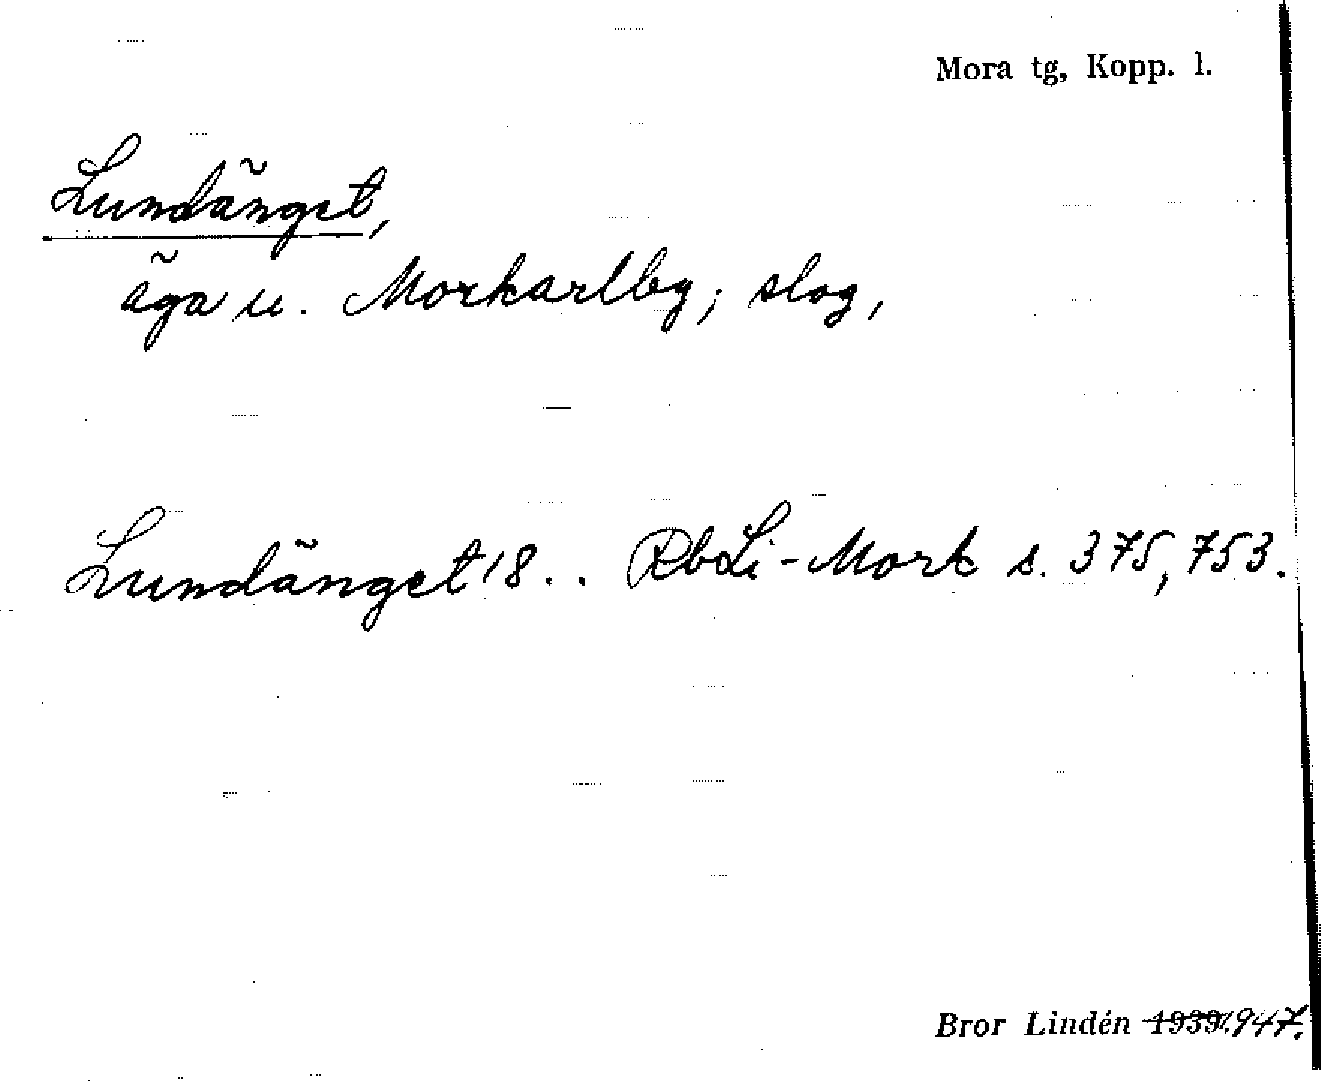 Mora tg, Kopp. l.
Lundänget,
äga u. Morkarlby; slog,
Lundänget 18.. RbLi-Mork s. 375, 753.
Bror Lindén 1939 1947.